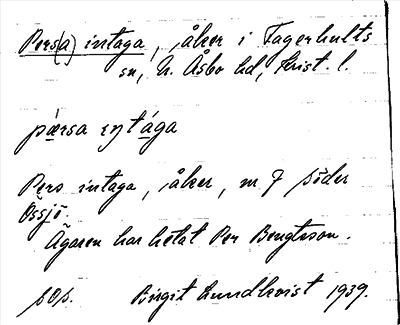 Pers(a) intaga, åker i Fagerhults
sn, N. Åsbo hd, Krist. l.
pærsa ıŋtága
Pers intaga, åker, nr 7 söder
Össjö.
Ägaren har hetat Per Bengtsson.
Birgit Lundkvist 1939.